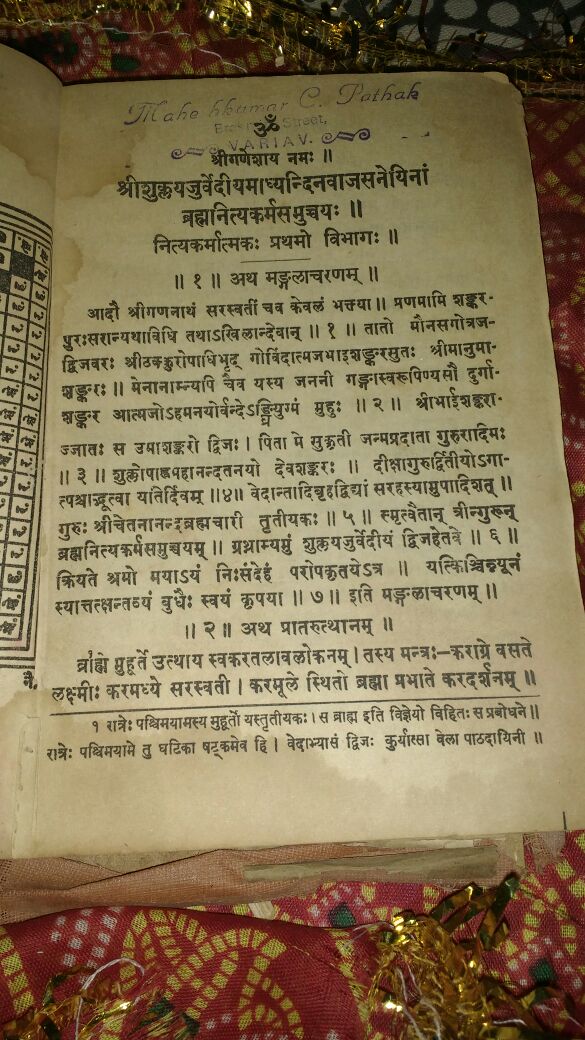 Maheshkumar C. Pathak
Street,
VARIAV.
ॐ
श्रीगणेशाय नमः ॥
श्रीशुक्लयजुर्वेदीयमाध्यन्दिनवाजसनेयिनां
ब्रह्मनित्यकर्मसमुच्चयः ॥
नित्यकर्मात्मकः प्रथमो विभागः ॥
॥ १ ॥ अथ मङ्गलाचरणम् ॥
आदौ श्रीगणनाथं सरस्वतीं चव केवलं भक्त्या ॥ प्रणमामि शङ्कर-
पुरःसरान्यथाविधि तथाऽखिलान्देवान् ॥ १ ॥ तातो मौनसगोत्रज-
द्विजवरः श्रीठक्कुरोपाधिभृद् गोविंदात्मजभाइशङ्करसुतः श्रीमानुमा-
शङ्करः ॥ मेनानाम्न्यपि चैव यस्य जननी गङ्गास्वरूपिण्यसौ दुर्गा-
शङ्कर आत्मजोऽहमनयोर्वन्देऽङ्घ्रियुग्मं मुहुः ॥ २ ॥ श्रीभाईशङ्करा-
ज्जातः स उमाशङ्करो द्विजः । पिता मे सुकृती जन्मप्रदाता गुरुरादिमः
॥ ३ ॥ शुक्लोपाह्वमहानन्दतनयो देवशङ्करः ॥ दीक्षागुरुर्द्वितीयोऽगा-
त्पश्चाद्भूत्वा यतिर्दिवम् ॥४॥ वेदान्तादिबृहद्विद्यां सरहस्यामुपादिशत् ॥
गुरुः श्रीचेतनानन्दब्रह्मचारी तृतीयकः ॥ ५ ॥ स्मृत्वैतान् त्रीन्गुरून्
ब्रह्मनित्यकर्मसमुच्चयम् ॥ प्रथ्नाम्यमुं शुक्लयजुर्वेदीयं द्विजहेतवे ॥ ६ ॥
क्रियते श्रमो मयाऽयं निःसंदेहं परोपकृतयेऽत्र ॥ यत्किञ्चिन्न्यूनं
स्यात्तत्क्षन्तव्यं बुधैः स्वयं कृपया ॥ ७ ॥ इति मङ्गलाचरणम् ॥
॥ २ ॥ अथ प्रातरुत्थानम् ॥
ब्राह्मे मुहूर्ते उत्थाय स्वकरतलावलोकनम् । तस्य मन्त्रः—कराग्रे वसते
लक्ष्मीः करमध्ये सरस्वती । करमूले स्थितो ब्रह्मा प्रभाते करदर्शनम् ॥
१ रात्रेः पश्चिमयामस्य मुहूर्तो यस्तृतीयकः । स ब्राह्म इति विज्ञेयो विहितः स प्रबोधने ॥
रात्रेः पश्चिमयामे तु घटिका षट्कमेव हि । वेदाभ्यासं द्विजः कुर्यात्सा वेला पाठदायिनी ॥